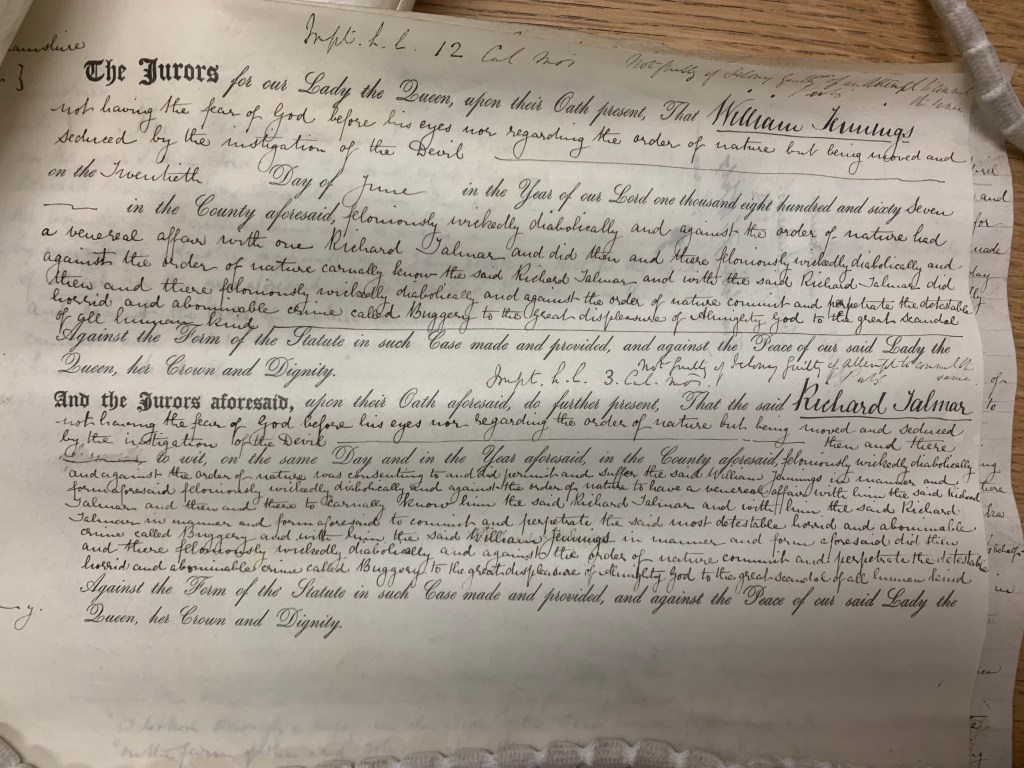 Impt. h. l. 12 Cal Mos
Not guilty of Felony Guilty of an attempt to commit
the same
The Jurors for our Lady the Queen, upon their Oath present, That William Jennings
not having the fear of God before his eyes nor regarding the order of nature but being moved and
seduced by the instigation of the Devil
on the Twentieth Day of June in the Year of our Lord one thousand eight hundred and sixty seven
in the County aforesaid, feloniously wickedly diabolically and against the order of nature had
a venereal affair with one Richard Talmar and did then and there feloniously wickedly diabolically and
against the order of nature carnally know the said Richard Talmar and with the said Richard Talmar did
then and there feloniously wickedly diabolically and against the order of nature commit and perpetrate the detestable
horrid and abominable crime called Buggery to the great displeasure of Almighty God to the great scandal
of all human kind
Against the Form of the Statute in such Case made and provided, and against the Peace of our said Lady the
Queen, her Crown and Dignity.
Impt. h. l. 3. Cal. Mos.
Not guilty of Felony Guilty of attempt to commit the
same
And the Jurors aforesaid, upon their Oath aforesaid, do further present, That the said Richard Talmar
not having the fear of God before his eyes nor regarding the order of nature but being moved and seduced
by the instigation of the Devil then and there
to wit, on the same Day and in the Year aforesaid, in the County aforesaid, feloniously wickedly diabolically
and against the order of nature was consenting to and did permit and suffer the said William Jennings in manner and
form aforesaid feloniously wickedly diabolically and against the order of nature to have a venereal affair with him the said Richard
Talmar and then and there to carnally know him the said Richard Talmar and with him the said Richard
Talmar in manner and form aforesaid to commit and perpetrate the said most detestable horrid and abominable
crime called Buggery and with him the said William Jennings in manner and form aforesaid did then
and there feloniously wickedly diabolically and against the order of nature commit and perpetrate the detestable
horrid and abominable crime called Buggery to the great displeasure of Almighty God to the great scandal of all human kind
Against the Form of the Statute in such Case made and provided, and against the Peace of our said Lady the
Queen, her Crown and Dignity.